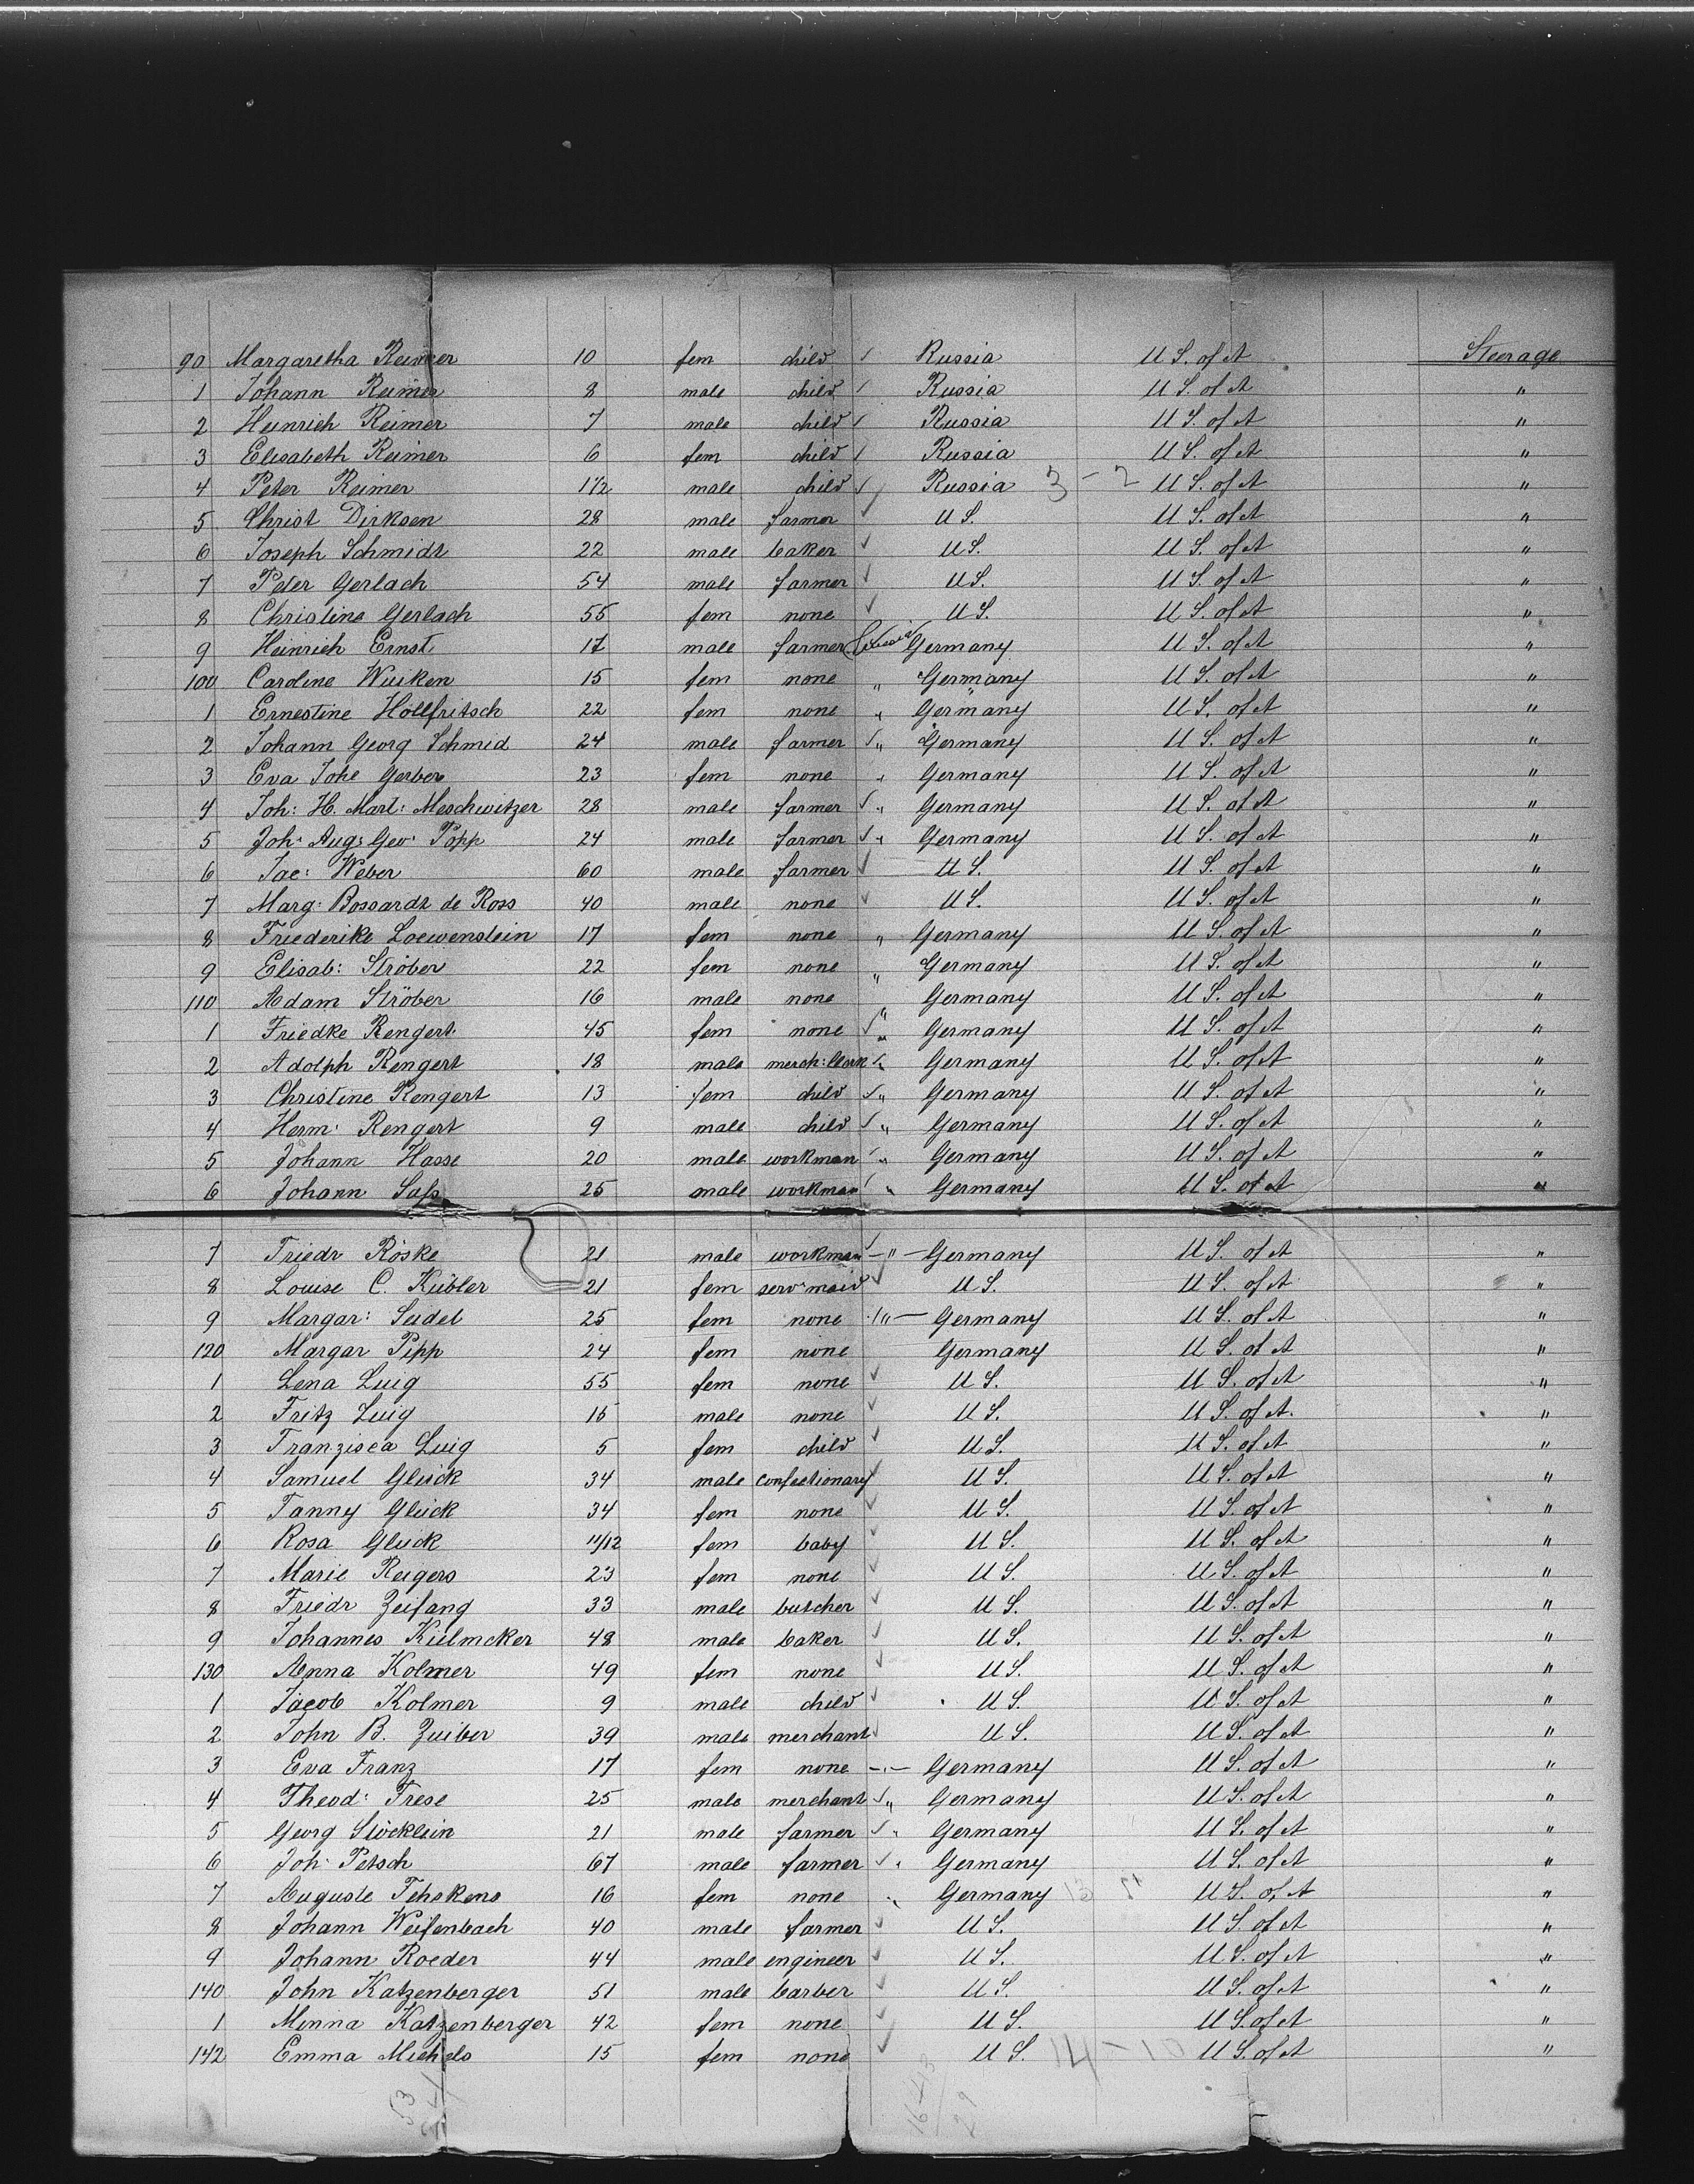 90 Margaretha Reimer 10 fem child ✓ Russia U S. of A Steerage
1 Johann Reimer 8 male child ✓ Russia U S. of A "
2 Heinrich Reimer 7 male child ✓ Russia U S. of A "
3 Elisabeth Reimer 6 fem child ✓ Russia U S. of A "
4 Peter Reimer 1 1/2 male child ✓ Russia 3 - 2 U S. of A "
5 Christ Dirksen 28 male farmer ✓ U S. U S. of A "
6 Joseph Schmidt 22 male baker ✓ U S. U S. of A "
7 Peter Gerlach 54 male farmer ✓ U S. U S. of A "
8 Christine Gerlach 55 fem none ✓ U S. U S. of A "
9 Heinrich Ernst 17 male farmer Germany U S. of A "
100 Caroline Wuiken 15 fem none " Germany U S. of A "
1 Ernestine Hollfritsch 22 fem none " Germany U S. of A "
2 Johann Georg Schmid 24 male farmer ✓ " Germany U S. of A "
3 Eva Johe Gerber 23 fem none " Germany U S. of A "
4 Joh: H. Mart: Meschwitzer 28 male farmer ✓ " Germany U S. of A "
5 Joh: Aug: Geo: Popp 24 male farmer ✓ " Germany U S. of A "
6 Jac: Weber 60 male farmer ✓ U S. U S. of A "
7 Marg: Bossardt de Ross 40 male none ✓ U S. U S. of A "
8 Friederike Loewenstein 17 fem none " Germany U S. of A "
9 Elisab: Ströber 22 fem none " Germany U S. of A "
110 Adam Ströber 16 male none " Germany U S. of A "
1 Friedke Rengert 45 fem none ✓ " Germany U S. of A "
2 Adolph Rengert 18 male merch: Clerk ✓ " Germany U S. of A "
3 Christine Rengert 13 fem child ✓ " Germany U S. of A "
4 Herm: Rengert 9 male child ✓ " Germany U S. of A "
5 Johann Hasse 20 male workman ✓ " Germany U S. of A "
6 Johann Sass 25 male workman ✓ " Germany U S. of A "
7 Friedr Röske 21 male workman ✓ - " - Germany U S. of A "
8 Louise C. Kübler 21 fem serv: maid ✓ U S. U S. of A "
9 Margar: Seidel 25 fem none " - Germany U S. of A "
120 Margar Pipp 24 fem none Germany U S. of A "
1 Lena Luig 55 fem none ✓ U S. U S. of A "
2 Fritz Luig 15 male none ✓ U S. U S. of A. "
3 Franzisca Luig 5 fem child ✓ U S. U S. of A "
4 Samuel Glück 34 male confectionary ✓ U S. U S. of A "
5 Fanny Glück 34 fem none ✓ U S. U S. of A "
6 Rosa Glück 11/12 fem baby ✓ U S. U S. of A "
7 Marie Rugers 23 fem none ✓ U S. U S. of A "
8 Friedr Zeifang 33 male butcher ✓ U S. U S. of A "
9 Johannes Kielmcker 48 male baker ✓ U S. U S. of A "
130 Anna Kolmer 49 fem none ✓ U S. U S. of A "
1 Jacob Kolmer 9 male child ✓ U S. U S. of A "
2 John B. Zuiber 39 male merchant ✓ U S. U S. of A "
3 Eva Franz 17 fem none - " - Germany U S. of A "
4 Theod: Frese 25 male merchant ✓ " Germany U S. of A "
5 Georg Stöcklein 21 male farmer ✓ " Germany U S. of A "
6 Joh: Petsch 67 male farmer ✓ " Germany U S. of A "
7 Auguste Fehskens 16 fem none " Germany 13 U S. of A "
8 Johann Weifenbach 40 male farmer ✓ U S. U S. of A "
9 Johann Roeder 44 male engineer ✓ U S. U S. of A "
140 John Katzenberger 51 male barber ✓ U S. U S. of A "
1 Minna Katzenberger 42 fem none ✓ U S. U S. of A "
142 Emma Michels 15 fem none ✓ U S. 14 - 10 U S. of A "
53
29